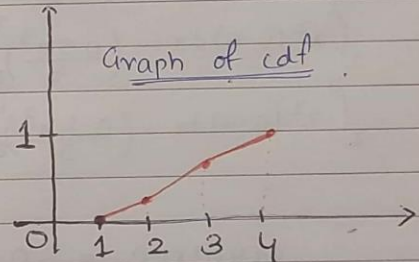 Graph of cdf
1
0 1 2 3 4